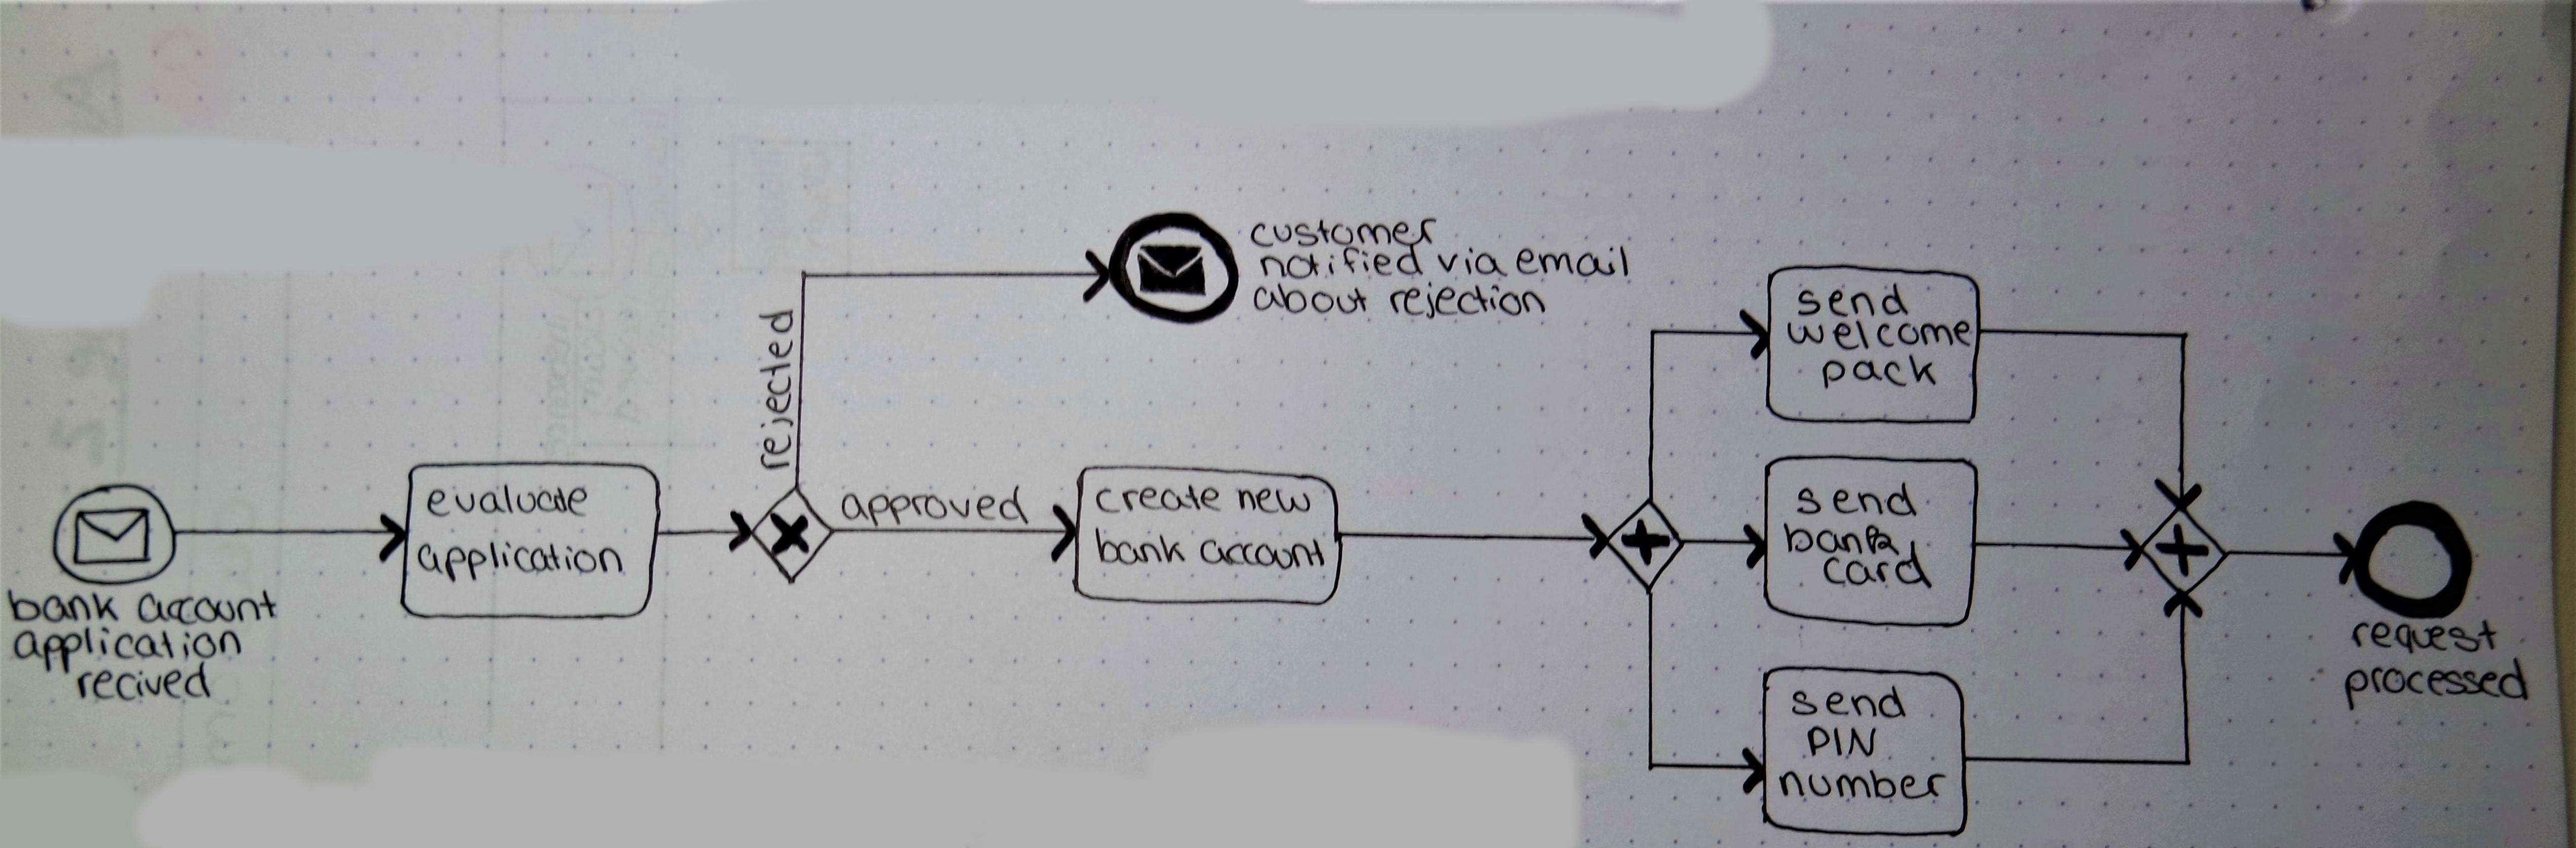 bank account
application
recived
evaluate
application
rejected
customer
notified via email
about rejection
approved
create new
bank account
send
welcome
pack
send
bank
card
send
PIN
number
request
processed